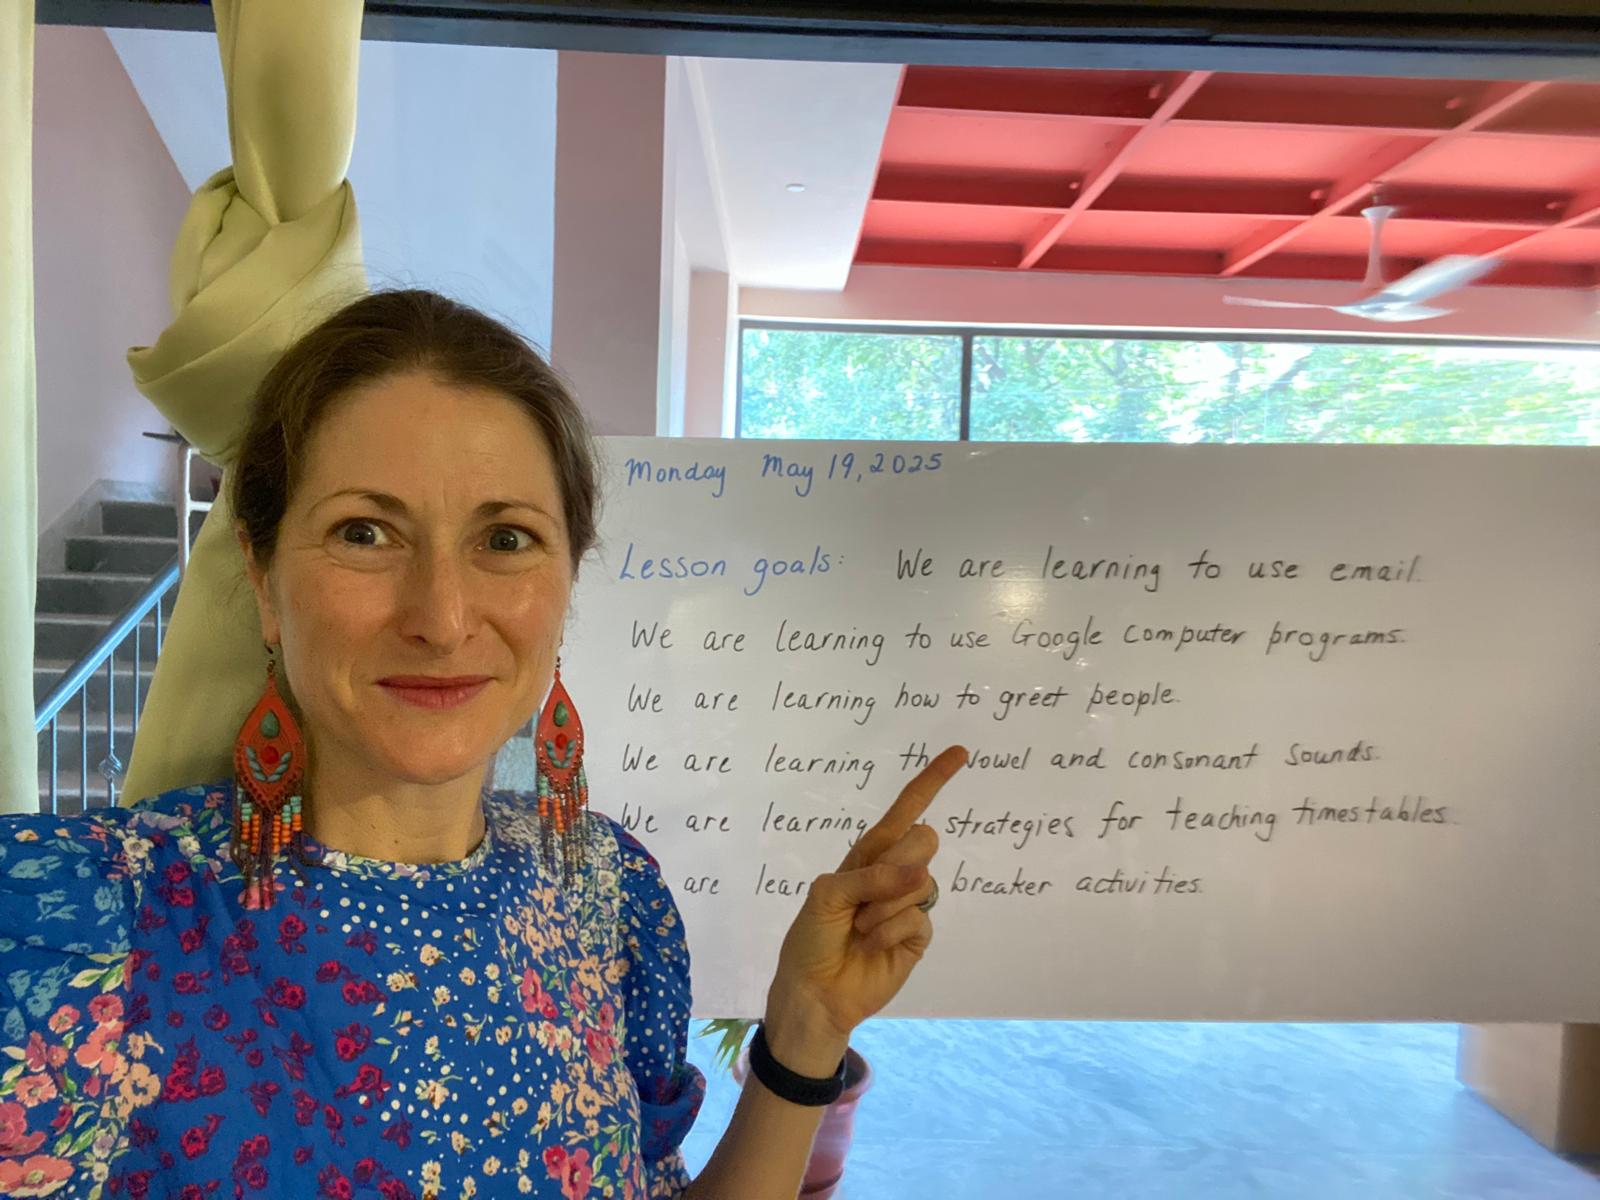 Monday May 19, 2025
Lesson goals: We are learning to use email.
We are learning to use Google Computer programs.
We are learning how to greet people.
We are learning th vowel and consonant sounds.
We are learning strategies for teaching timestables.
are lear breaker activities.